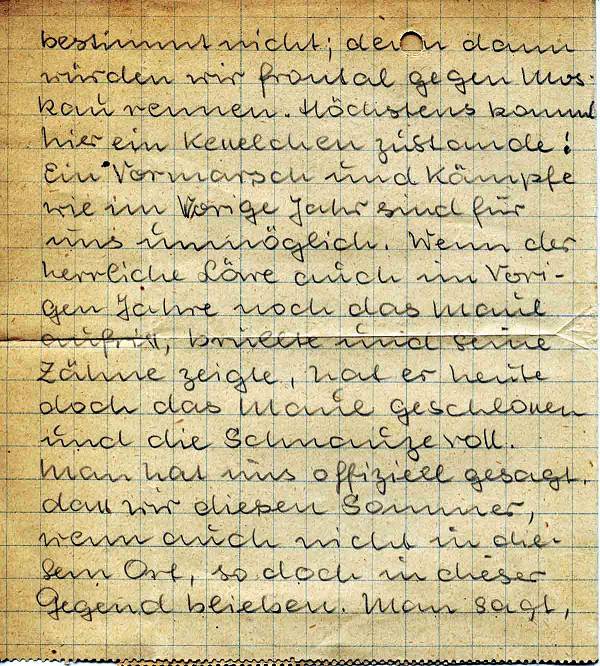 bestimmt nicht; denn dann
würden wir frontal gegen Mos-
kau rennen. Höchstens kommt
hier ein Kesselchen zustande!
Ein Vormarsch und Kämpfe
wie im Vorige Jahr sind für
uns unmöglich. Wenn der
herrliche Löwe auch im Vori-
gen Jahre noch das Maul
aufriß, brüllte und seine
Zähne zeigte, hat er heute
doch das Maul geschlossen
und die Schnauze voll.
Man hat uns offiziell gesagt,
dass wir diesen Sommer,
wenn auch nicht in die-
sem Ort, so doch in dieser
Gegend blieben. Man sagt,